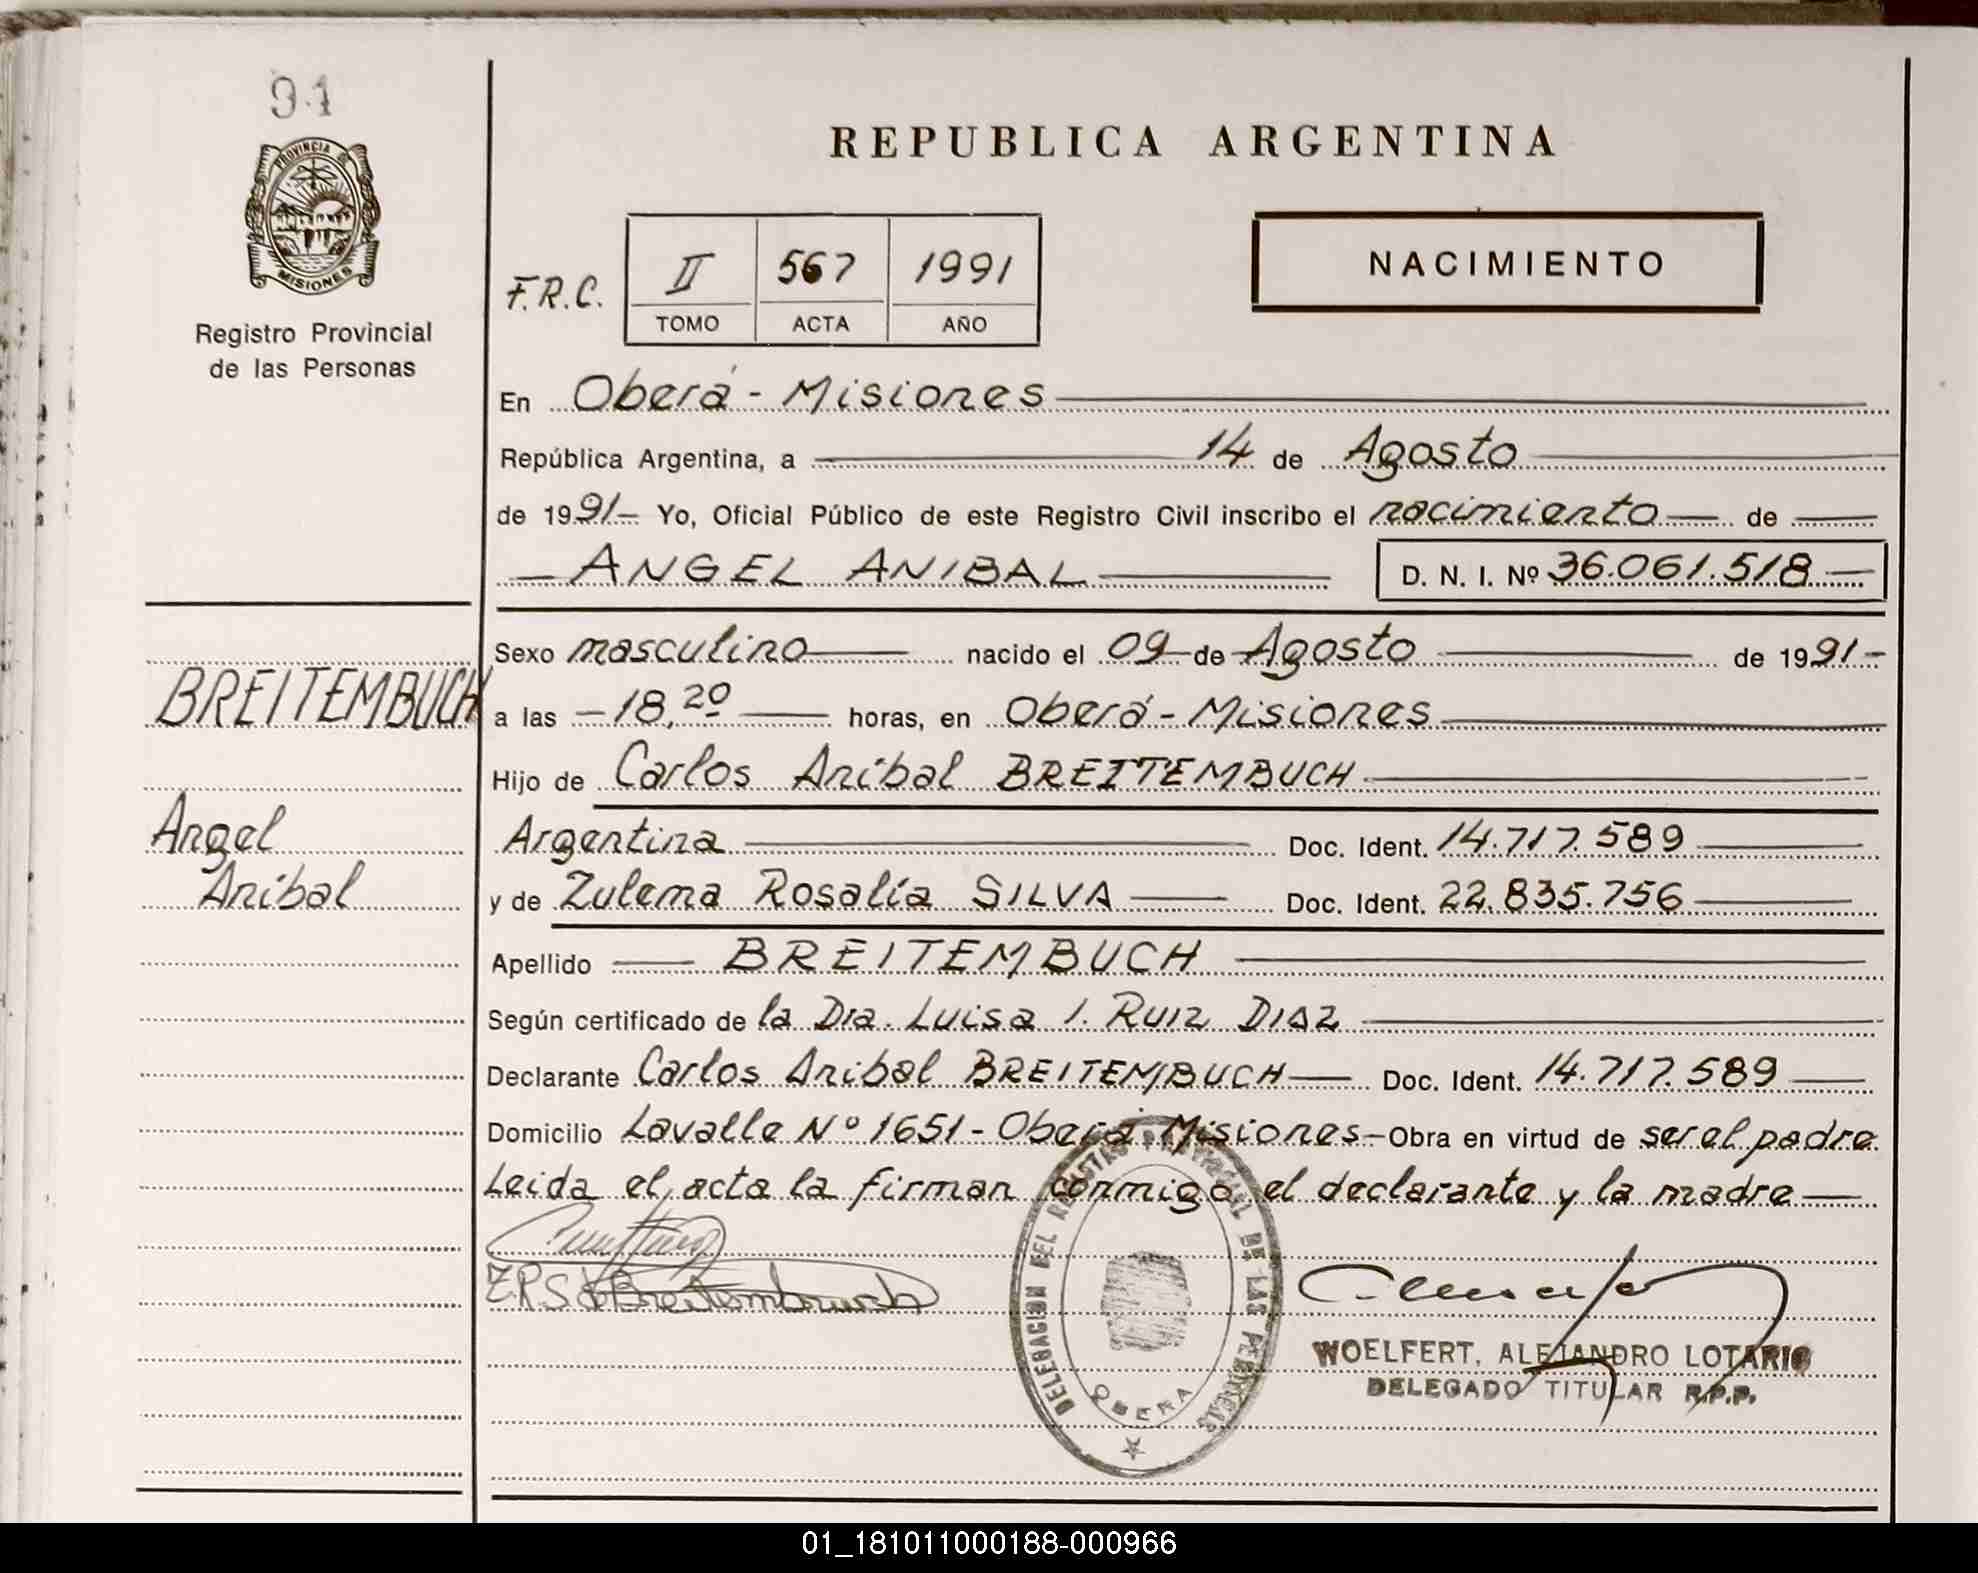 91
PROVINCIA DE
MISIONES
Registro Provincial
de las Personas
BREITEMBUCH
Angel
Anibal
REPUBLICA ARGENTINA
F.R.C.
II 567 1991
TOMO ACTA AÑO
NACIMIENTO
En Oberá - Misiones
República Argentina, a 14 de Agosto
de 1991- Yo, Oficial Público de este Registro Civil inscribo el nacimiento de
ANGEL ANIBAL D. N. I. Nº 36.061.518
Sexo masculino nacido el 09 de Agosto de 1991-
a las 18,20 horas, en Oberá - Misiones
Hijo de Carlos Anibal BREITEMBUCH
Argentina Doc. Ident. 14.717.589
y de Zulema Rosalía SILVA Doc. Ident. 22.835.756
Apellido BREITEMBUCH
Según certificado de la Dra. Luisa I. Ruiz Diaz
Declarante Carlos Anibal BREITEMBUCH Doc. Ident. 14.717.589
Domicilio Lavalle Nº 1651 - Oberá Misiones - Obra en virtud de ser el padre
Leida el acta la firman conmigo el declarante y la madre
Z.R.S d Breitembruch
DELEGACION DEL REGISTRO PROVINCIAL DE LAS PERSONAS
OBERA
WOELFERT, ALEJANDRO LOTARIO
DELEGADO TITULAR R.P.P.
01_181011000188-000966